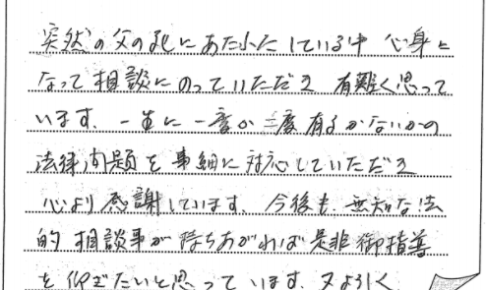 突然の父の死にあたふたしている中 心身に
なって相談にのっていただき 有難く思って
います。一生に一度か二度有るかないかの
法律問題を事細に対応していただき
心より感謝しています。今後も無知な法
的相談事が持ちあがれば是非御指導
を仰ぎたいと思っています。又よろしく